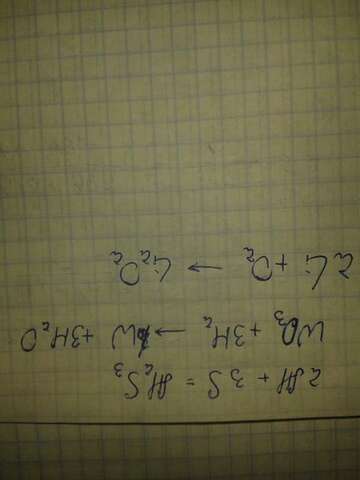 2Al + 3S = Al₂S₃
WO₃ + 3H₂ → W + 3H₂O
2Li + O₂ → Li₂O₂